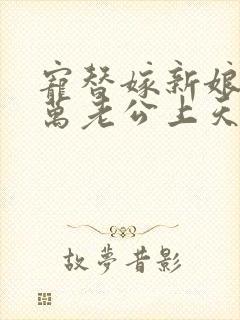 寵替嫁新娘
萬老公上天
故夢昔影